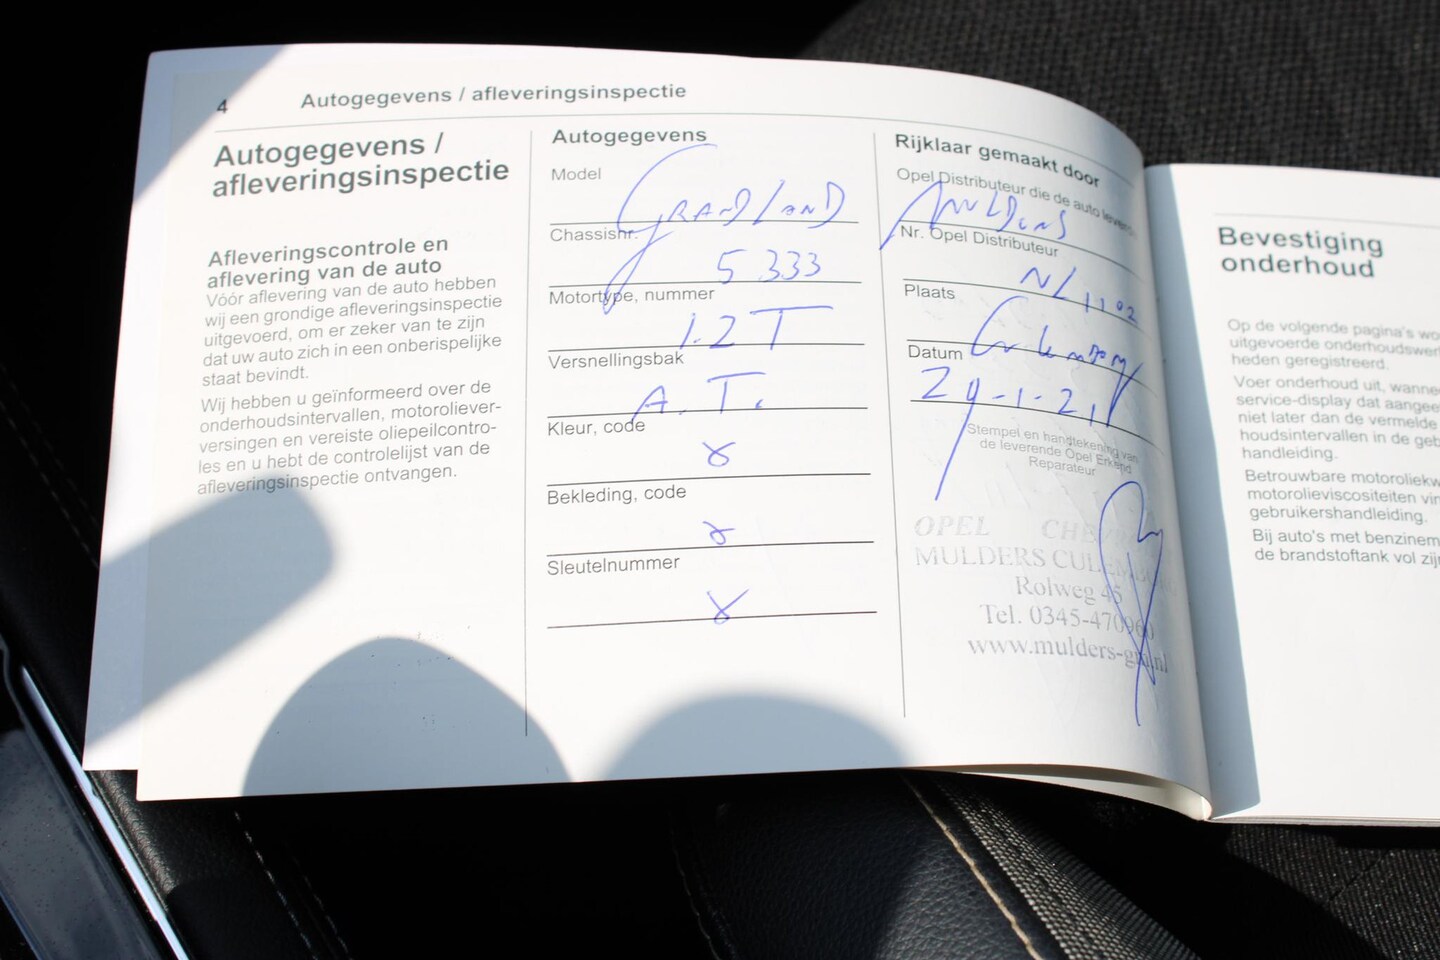 4 Autogegevens / afleveringsinspectie
Autogegevens /
afleveringsinspectie
Afleveringscontrole en
aflevering van de auto
Vóór aflevering van de auto hebben
wij een grondige afleveringsinspectie
uitgevoerd, om er zeker van te zijn
dat uw auto zich in een onberispelijke
staat bevindt.
Wij hebben u geïnformeerd over de
onderhoudsintervallen, motoroliever-
versingen en vereiste oliepeilcontro-
les en u hebt de controlelijst van de
afleveringsinspectie ontvangen.
Autogegevens
Model
GRANDLAND
Chassisnr.
5333
Motortype, nummer
1.2 T
Versnellingsbak
A.T.
Kleur, code
Bekleding, code
Sleutelnummer
Rijklaar gemaakt door
Opel Distributeur die de auto
MULDERS
Nr. Opel Distributeur
NL 1102
Plaats
Culemborg
Datum
29-1-21
Stempel en handtekening van
de leverende Opel Erkend
Reparateur
OPEL
MULDERS
Rolweg 45
Tel. 0345-470960
www.mulders-gm.nl
Bevestiging
onderhoud
Op de volgende pagina's
uitgevoerde
heden geregistreerd.
Voer onderhoud uit,
service-display dat
niet later dan de vermelde
houdsintervallen in de
handleiding.
Betrouwbare
motorolieviscositeiten
gebruikershandleiding.
Bij auto's met
de brandstoftank vol